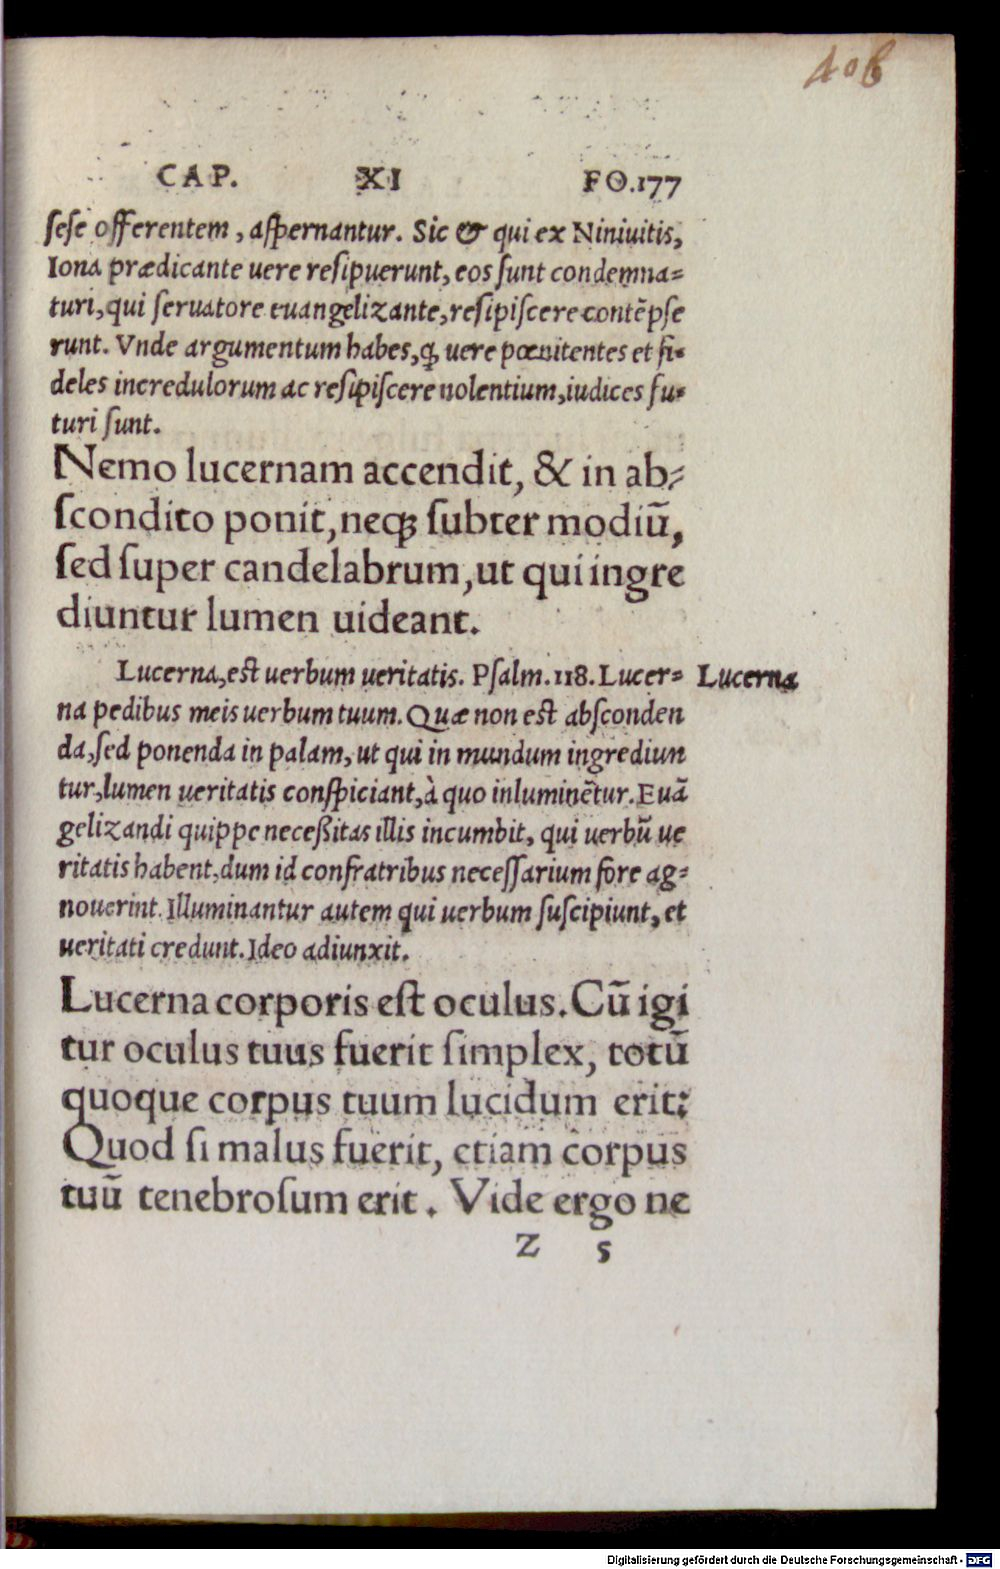 406
CAP. XI FO.177
ſeſe offerentem, aſpernantur. Sic & qui ex Niniuitis,
Iona prædicante uere reſipuerunt, eos ſunt condemna-
turi, qui ſeruatore euangelizante, reſipiſcere contẽpſe
runt. Vnde argumentum habes, ꝙ uere pœnitentes et fi-
deles incredulorum ac reſipiſcere nolentium, iudices fu-
turi ſunt.
Nemo lucernam accendit, & in ab-
ſcondito ponit, neqꝫ ſubter modiũ,
ſed ſuper candelabrum, ut qui ingre
diuntur lumen uideant.
Lucerna, est uerbum ueritatis. Pſalm. 118. Lucer- Lucerna
na pedibus meis uerbum tuum. Quæ non est abſconden
da, ſed ponenda in palam, ut qui in mundum ingrediun
tur, lumen ueritatis conſpiciant, à quo inluminẽtur. Euã
gelizandi quippe neceßitas illis incumbit, qui uerbũ ue
ritatis habent, dum id confratribus neceſſarium fore ag-
nouerint. Illuminantur autem qui uerbum ſuſcipiunt, et
ueritati credunt. Ideo adiunxit.
Lucerna corporis est oculus. Cũ igi
tur oculus tuus fuerit ſimplex, totũ
quoque corpus tuum lucidum erit:
Quod ſi malus fuerit, etiam corpus
tuũ tenebroſum erit. Vide ergo ne
Z 5
Digitalisierung gefördert durch die Deutsche Forschungsgemeinschaft - DFG